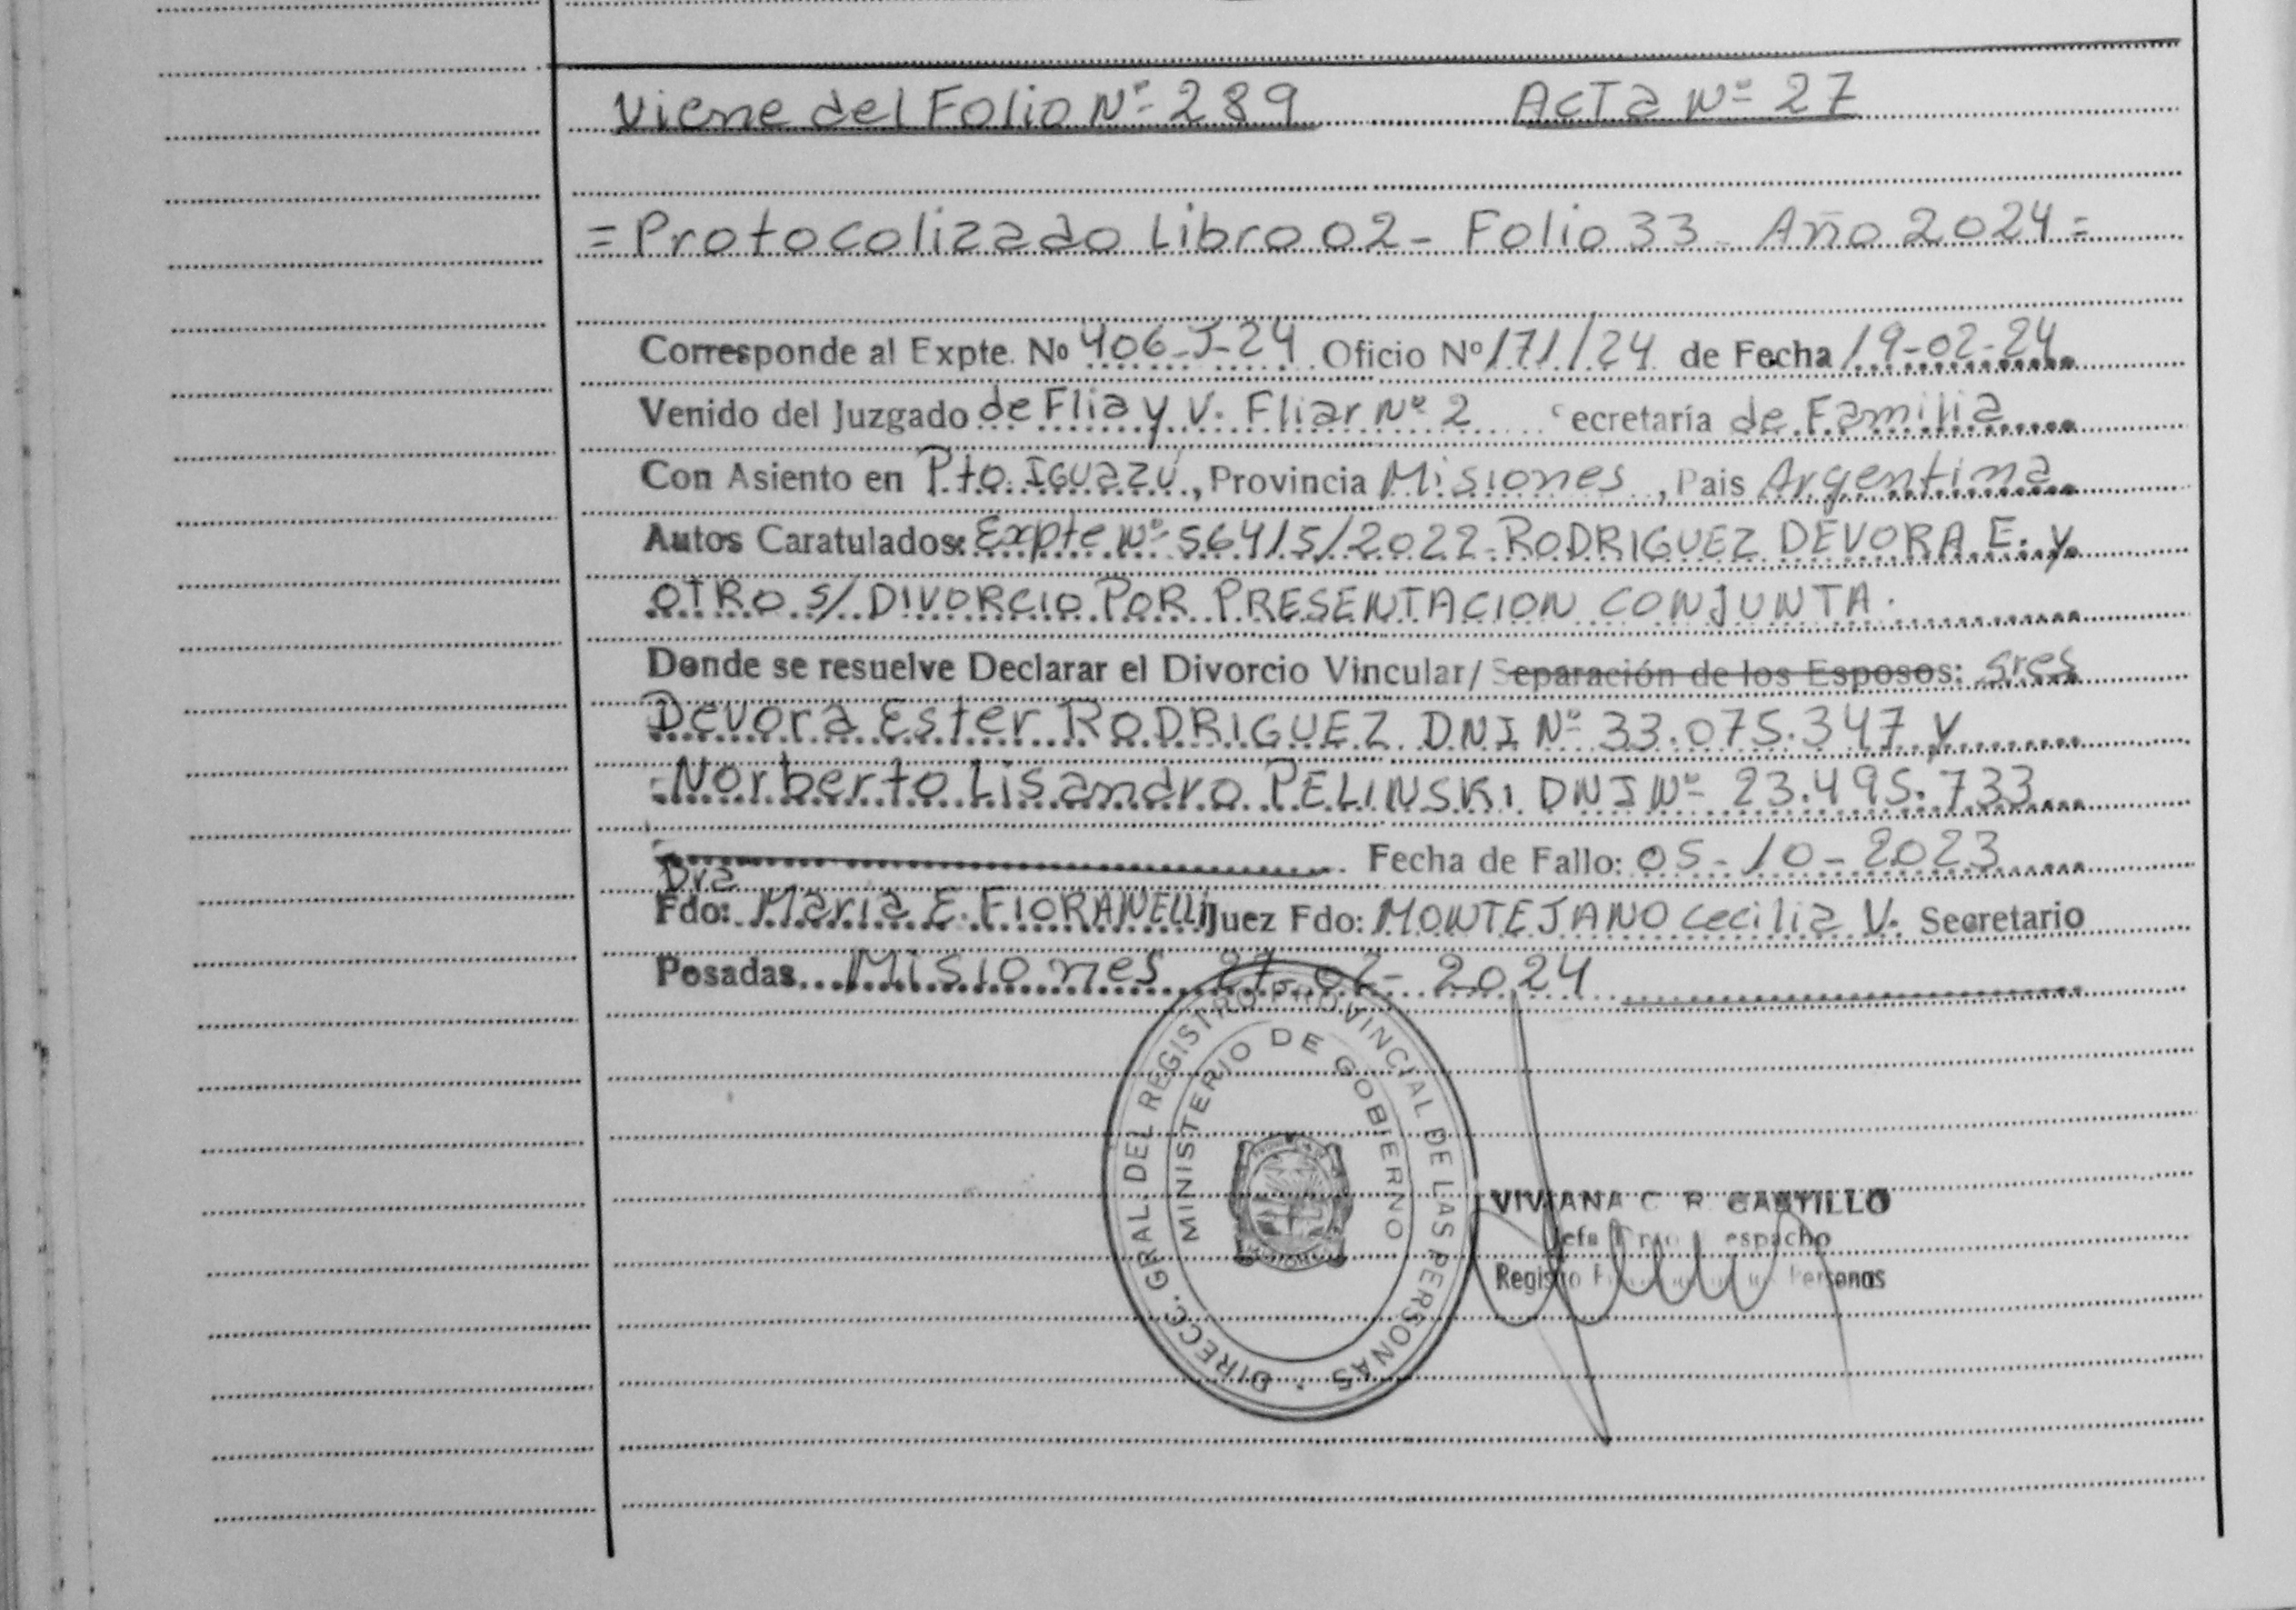 Viene del Folio Nº 289 Acta Nº 27
= Protocolizado Libro 02 - Folio 33 - Año 2024 =
Corresponde al Expte. Nº 406-J-24 Oficio Nº 171/24 de Fecha 19-02-24
Venido del Juzgado de Flia y V. Fliar Nº 2 ecretaría de Familia
Con Asiento en Pto. Iguazú, Provincia Misiones, Pais Argentina
Autos Caratulados: Expte Nº 56415/2022 - RODRIGUEZ DEVORA E. y
OTRO s/ DIVORCIO POR PRESENTACION CONJUNTA.
Donde se resuelve Declarar el Divorcio Vincular/ Separación de los Esposos: sres
Devora Ester RODRIGUEZ DNI Nº 33.075.347 y
Norberto Lisandro PELINSKI DNI Nº 23.495.733
Fecha de Fallo: 05-10-2023
Dra
Fdo: Maria E. FIORANELLI Juez Fdo: MONTEJANO Cecilia V. Secretario
Posadas Misiones 27-02-2024
DIRECC. GRAL. DEL REGISTRO PROVINCIAL DE LAS PERSONAS
MINISTERIO DE GOBIERNO
MISIONES
VIVIANA C. R. CASTILLO
Jefa espacho
Registro Personas